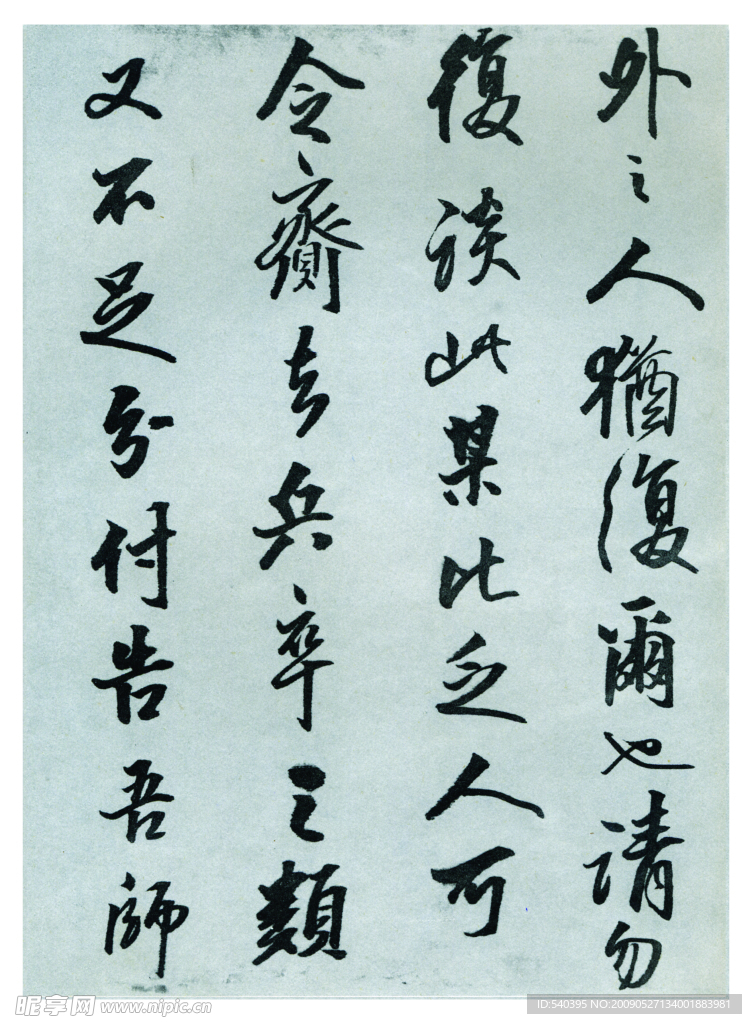 外之人猶復爾也請勿
復談此某比乏人可
令齎去兵卒之類
又不足分付告吾師
昵享网 www.nipic.cn
ID:540395 NO:20090527134001883981